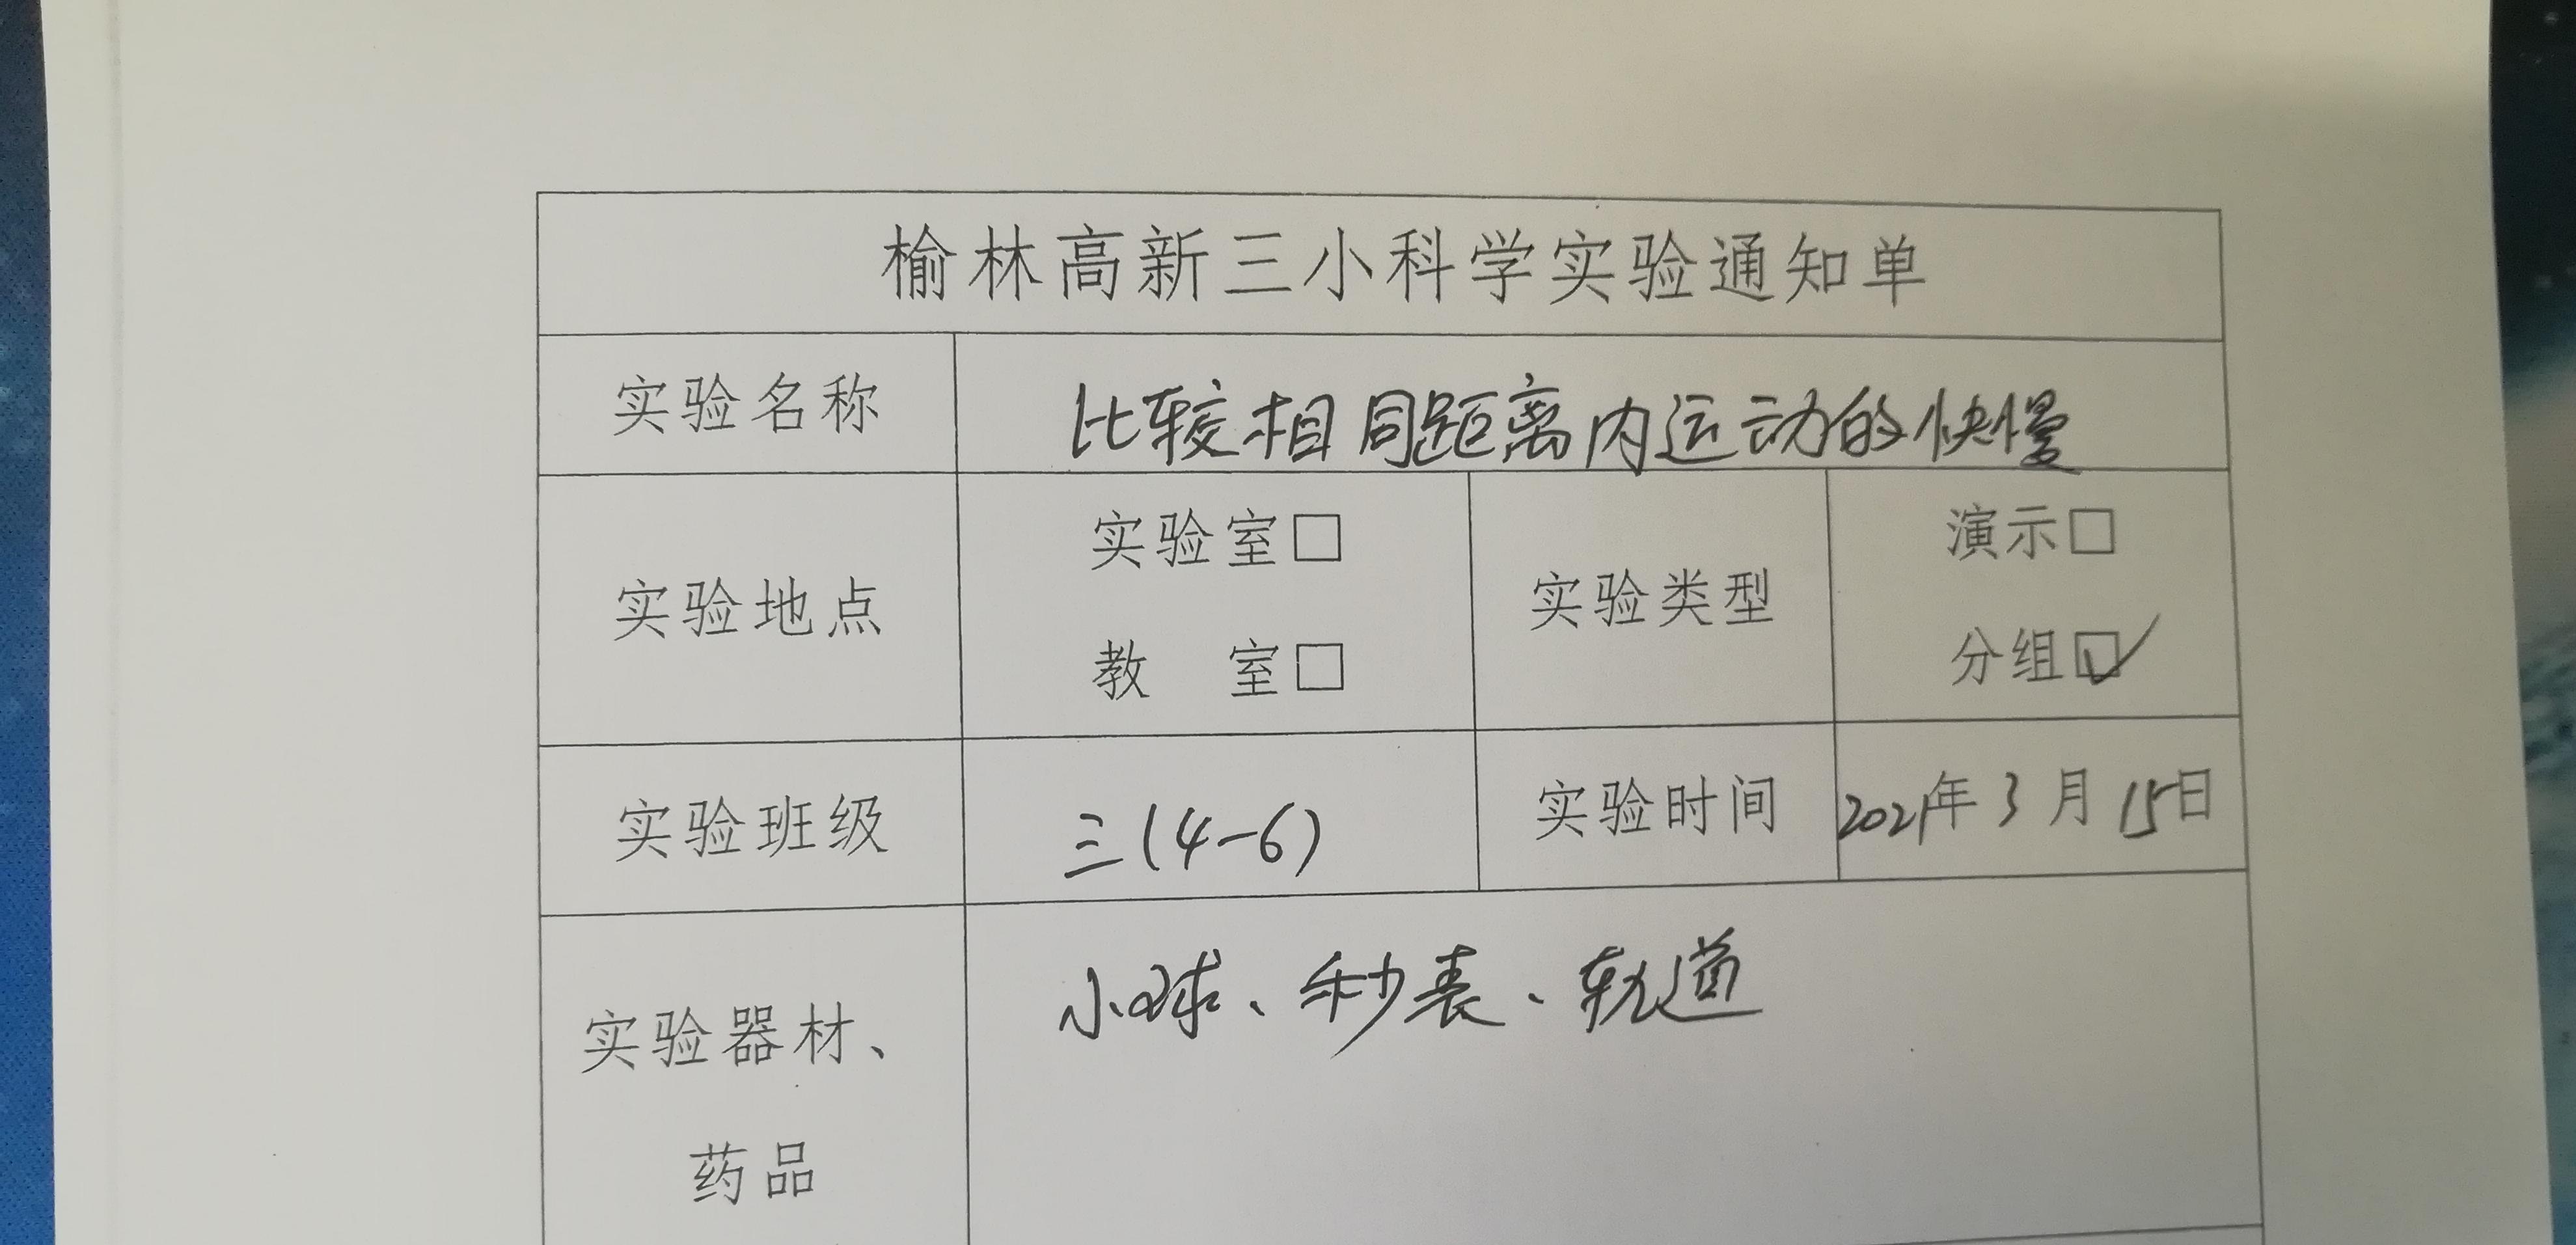 榆林高新三小科学实验通知单
实验名称 比较相同距离内运动的快慢
实验地点 实验室□ 教 室□ 实验类型 演示□ 分组☑
实验班级 三(4-6) 实验时间 2021年3月15日
实验器材、 小球、秒表、轨道
药品